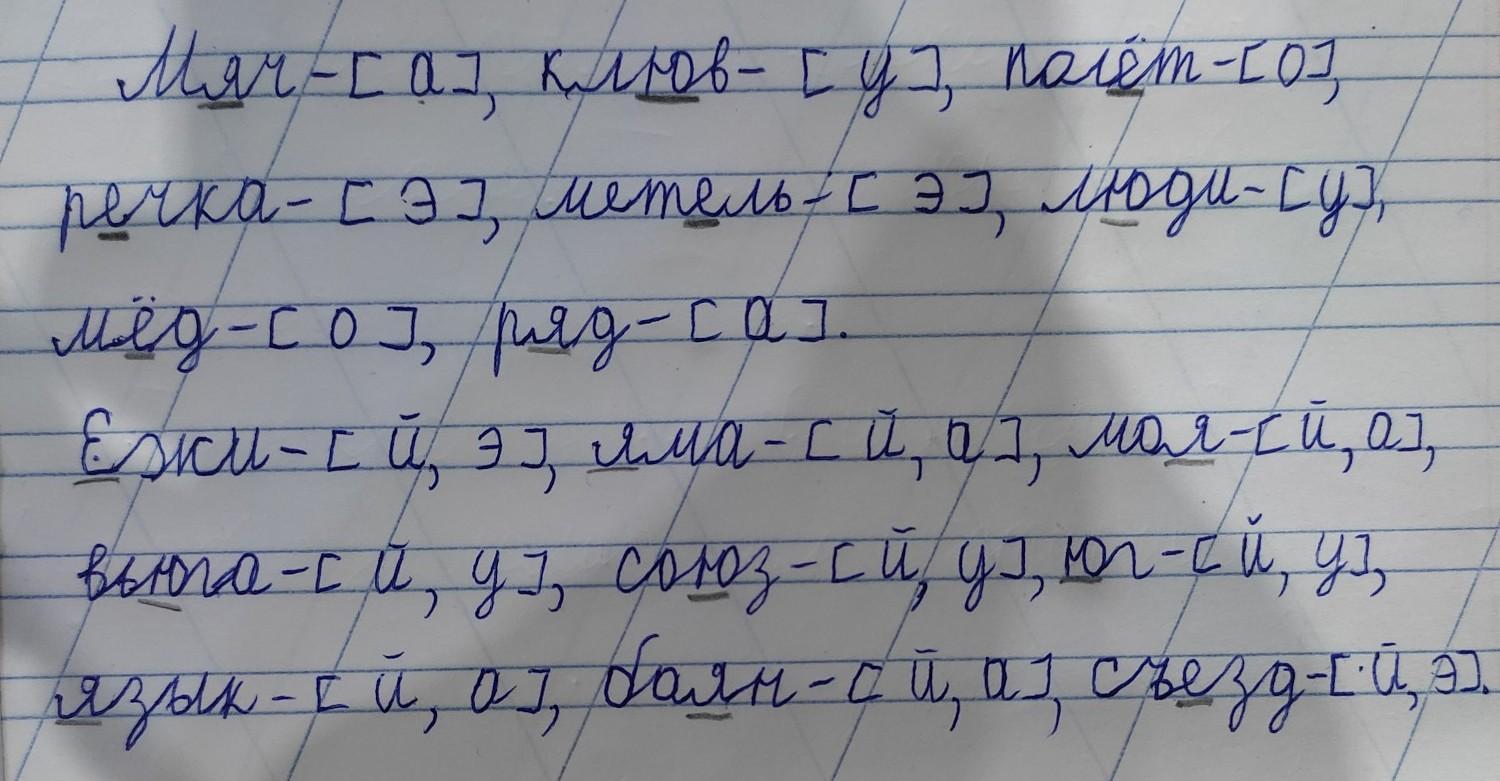 Мяч-[а], клюв-[у], полёт-[о],
речка-[э], метель-[э], люди-[у],
мёд-[о], ряд-[а].
Ежи-[й, э], яма-[й, а], моя-[й, а],
вьюга-[й, у], союз-[й, у], юг-[й, у],
язык-[й, а], баян-[й, а], съезд-[й, э].